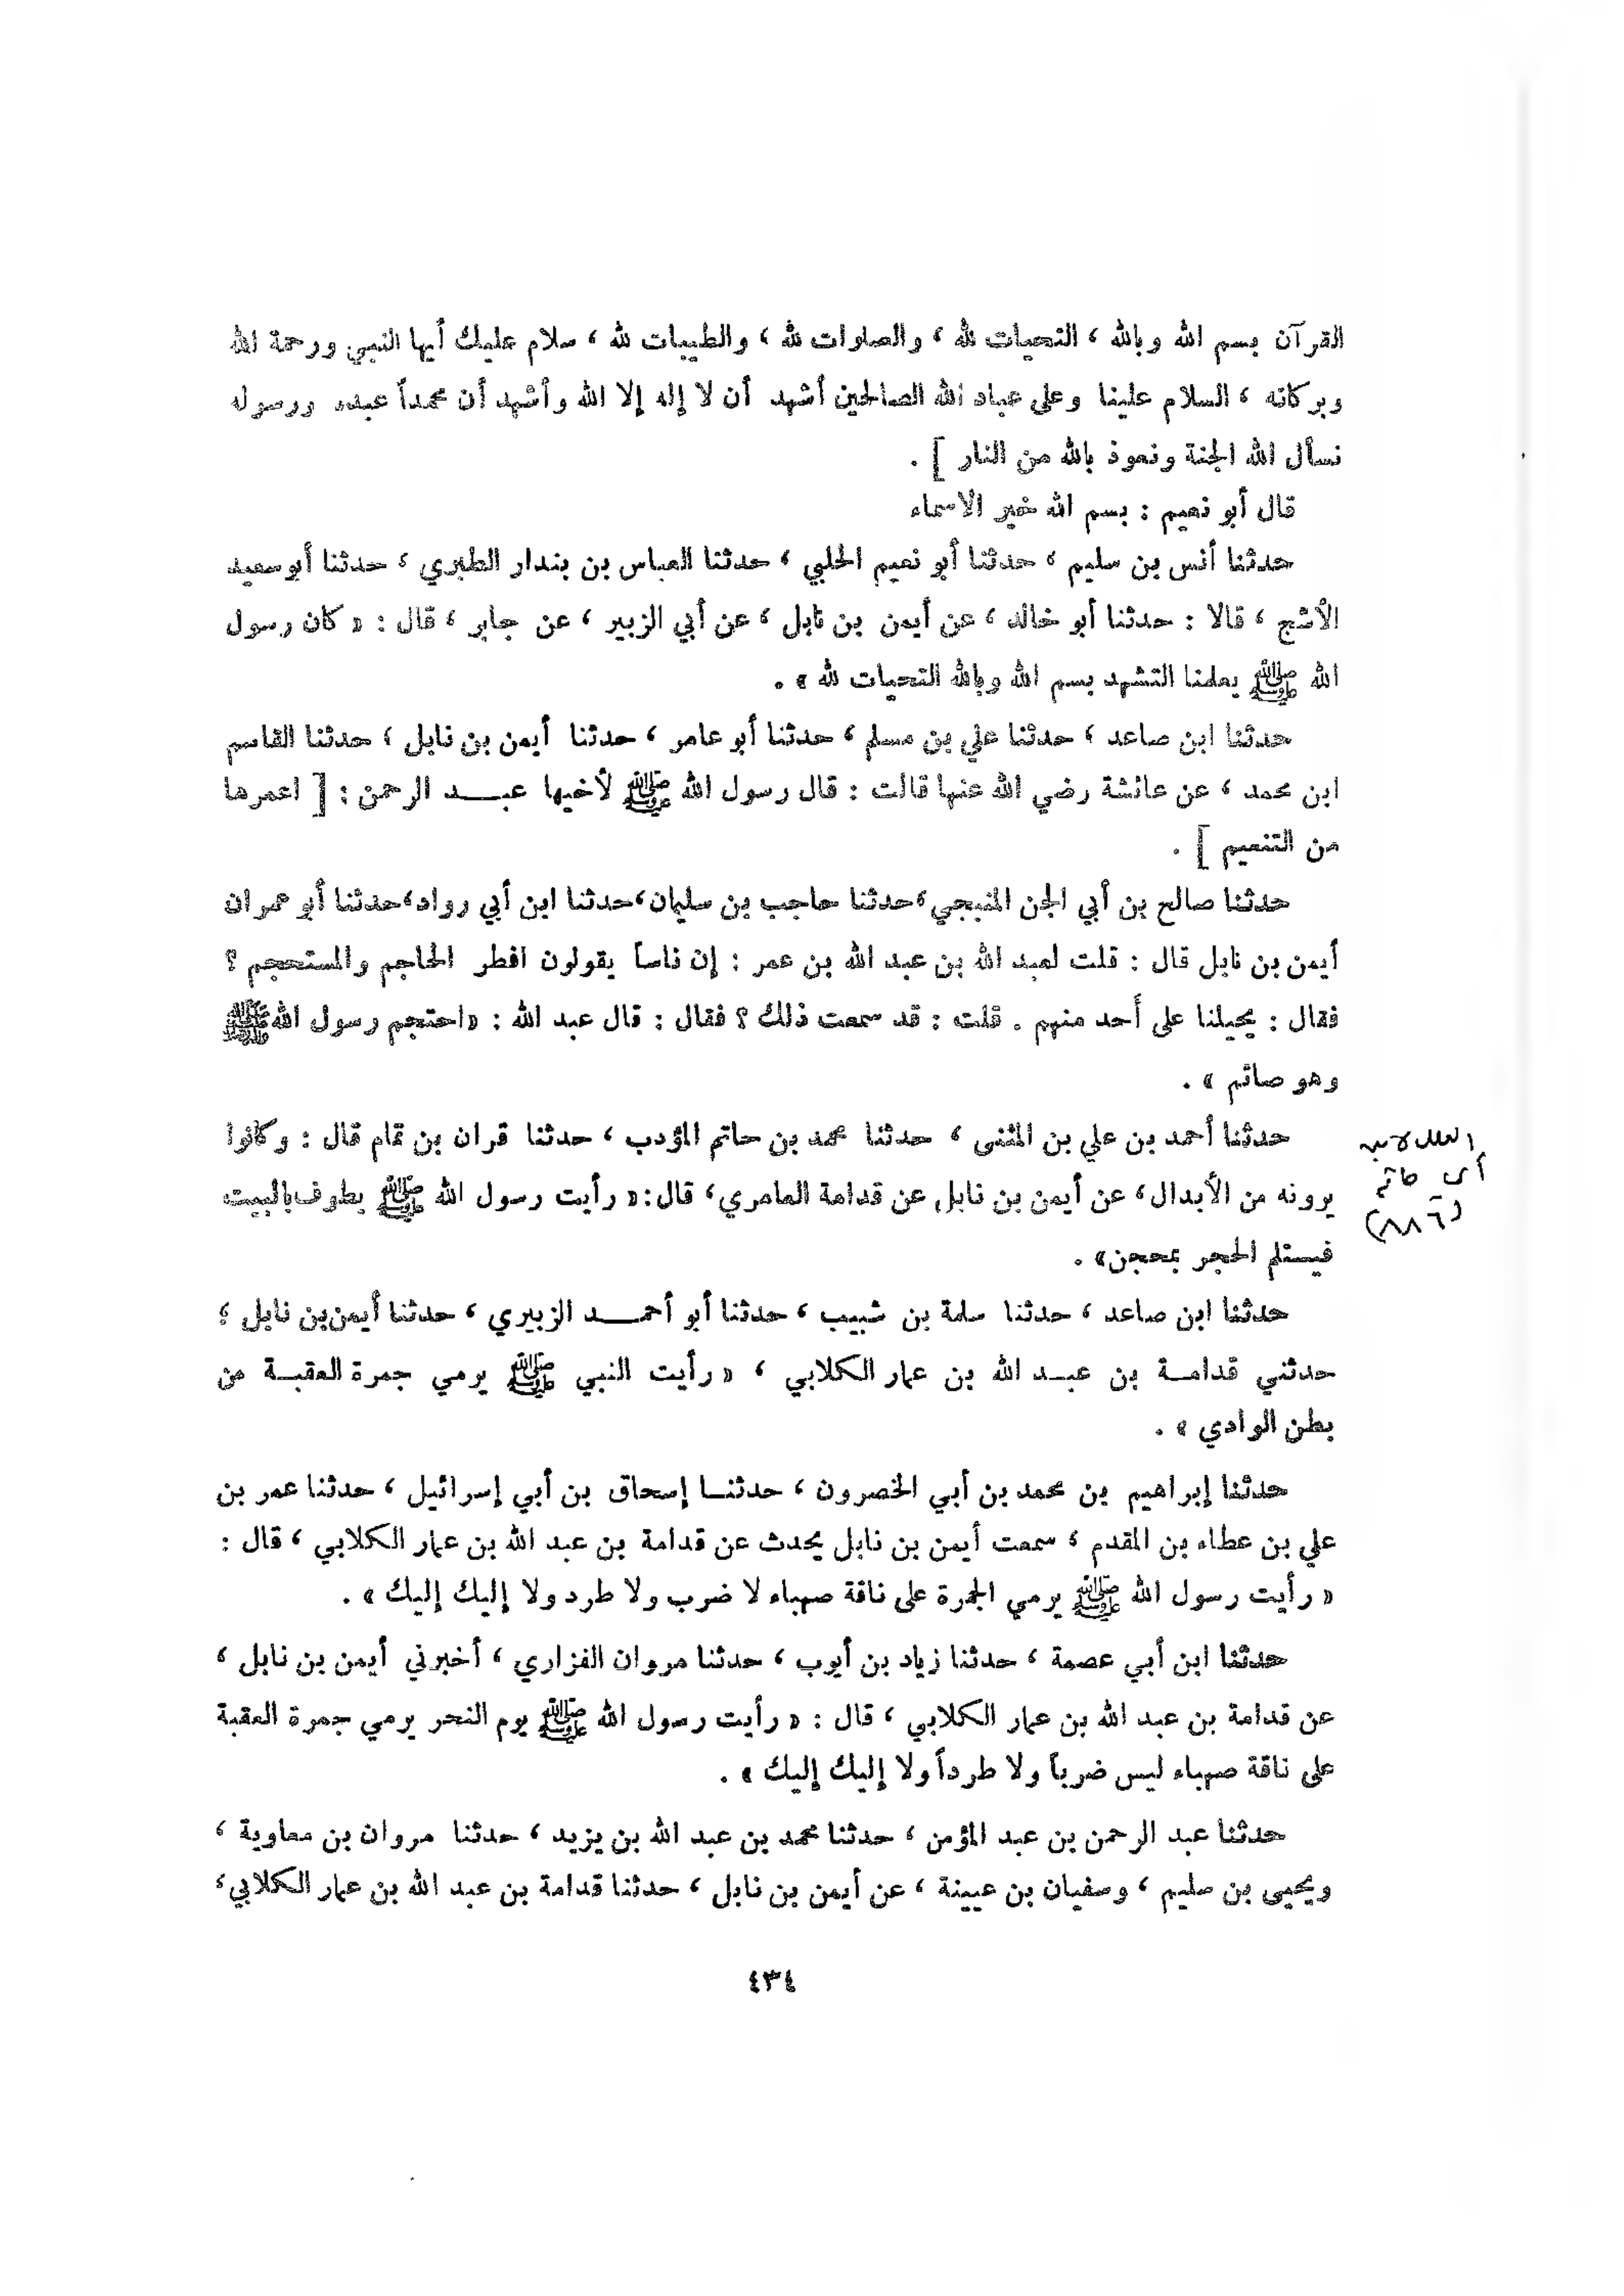 القرآن بسم الله وبالله ، التحيات لله ، والصلوات لله ، والطيبات لله ، سلام عليك أيها النبي ورحمة الله
وبركاته ، السلام علينا وعلى عباد الله الصالحين أشهد أن لا إله إلا الله وأشهد أن محمداً عبده ورسوله
نسأل الله الجنة ونعوذ بالله من النار ] .
قال أبو نعيم : بسم الله خير الاسماء
حدثنا أنس بن سليم ، حدثنا أبو نعيم الحلبي ، حدثنا العباس بن بندار الطبري ، حدثنا أبو سعيد
الأشج ، قالا : حدثنا أبو خالد ، عن أيمن بن نابل ، عن أبي الزبير ، عن جابر ، قال : « كان رسول
الله ﷺ يعلمنا التشهد بسم الله وبالله التحيات لله » .
حدثنا ابن صاعد ، حدثنا علي بن مسلم ، حدثنا أبو عامر ، حدثنا أيمن بن نابل ، حدثنا القاسم
ابن محمد ، عن عائشة رضي الله عنها قالت : قال رسول الله ﷺ لأخيها عبد الرحمن : [ اعمرها
من التنعيم ] .
حدثنا صالح بن أبي الجن المنبجي ، حدثنا حاجب بن سليمان ، حدثنا ابن أبي رواد ، حدثنا أبو عمران
أيمن بن نابل قال : قلت لعبد الله بن عبد الله بن عمر : إن ناساً يقولون افطر الحاجم والمستحجم ؟
فقال : يحيلنا على أحد منهم . قلت : قد سمعت ذلك ؟ فقال : قال عبد الله : « احتجم رسول الله ﷺ
وهو صائم » .
حدثنا أحمد بن علي بن المثنى ، حدثنا محمد بن حاتم المؤدب ، حدثنا قران بن تمام قال : وكانوا
يرونه من الأبدال ، عن أيمن بن نابل عن قدامة العامري ، قال : « رأيت رسول الله ﷺ يطوف بالبيت
فيستلم الحجر بمحجن » .
العلل لابن
أبي حاتم
(٨٨٦)
حدثنا ابن صاعد ، حدثنا سلمة بن شبيب ، حدثنا أبو أحمد الزبيري ، حدثنا أيمن بن نابل ؛
حدثني قدامة بن عبد الله بن عمار الكلابي ، « رأيت النبي ﷺ يرمي جمرة العقبة من
بطن الوادي » .
حدثنا إبراهيم بن محمد بن أبي الخصرون ، حدثنا إسحاق بن أبي إسرائيل ، حدثنا عمر بن
علي بن عطاء بن المقدم ، سمعت أيمن بن نابل يحدث عن قدامة بن عبد الله بن عمار الكلابي ، قال :
« رأيت رسول الله ﷺ يرمي الجمرة على ناقة صهباء لا ضرب ولا طرد ولا إليك إليك » .
حدثنا ابن أبي عصمة ، حدثنا زياد بن أيوب ، حدثنا مروان الفزاري ، أخبرني أيمن بن نابل ،
عن قدامة بن عبد الله بن عمار الكلابي ، قال : « رأيت رسول الله ﷺ يوم النحر يرمي جمرة العقبة
على ناقة صهباء ليس ضرباً ولا طرداً ولا إليك إليك » .
حدثنا عبد الرحمن بن عبد المؤمن ، حدثنا محمد بن عبد الله بن يزيد ، حدثنا مروان بن معاوية ،
ويحيى بن سليم ، وسفيان بن عيينة ، عن أيمن بن نابل ، حدثنا قدامة بن عبد الله بن عمار الكلابي ،
٤٣٤